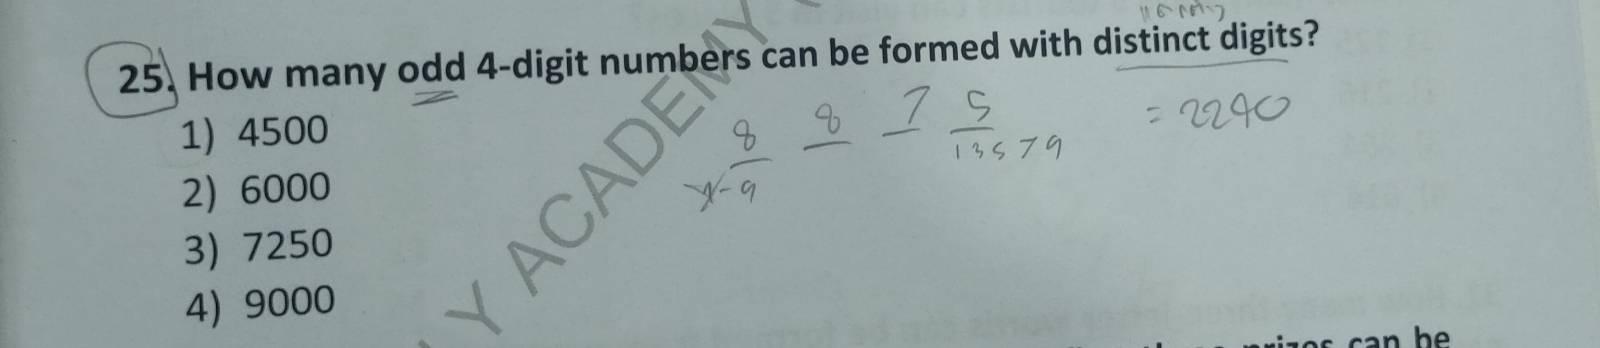 25. How many odd 4-digit numbers can be formed with distinct digits?
8 8 7 5 = 2240
1 3 5 7 9
- 9
1) 4500
2) 6000
3) 7250
4) 9000
Y ACADEMY
can be